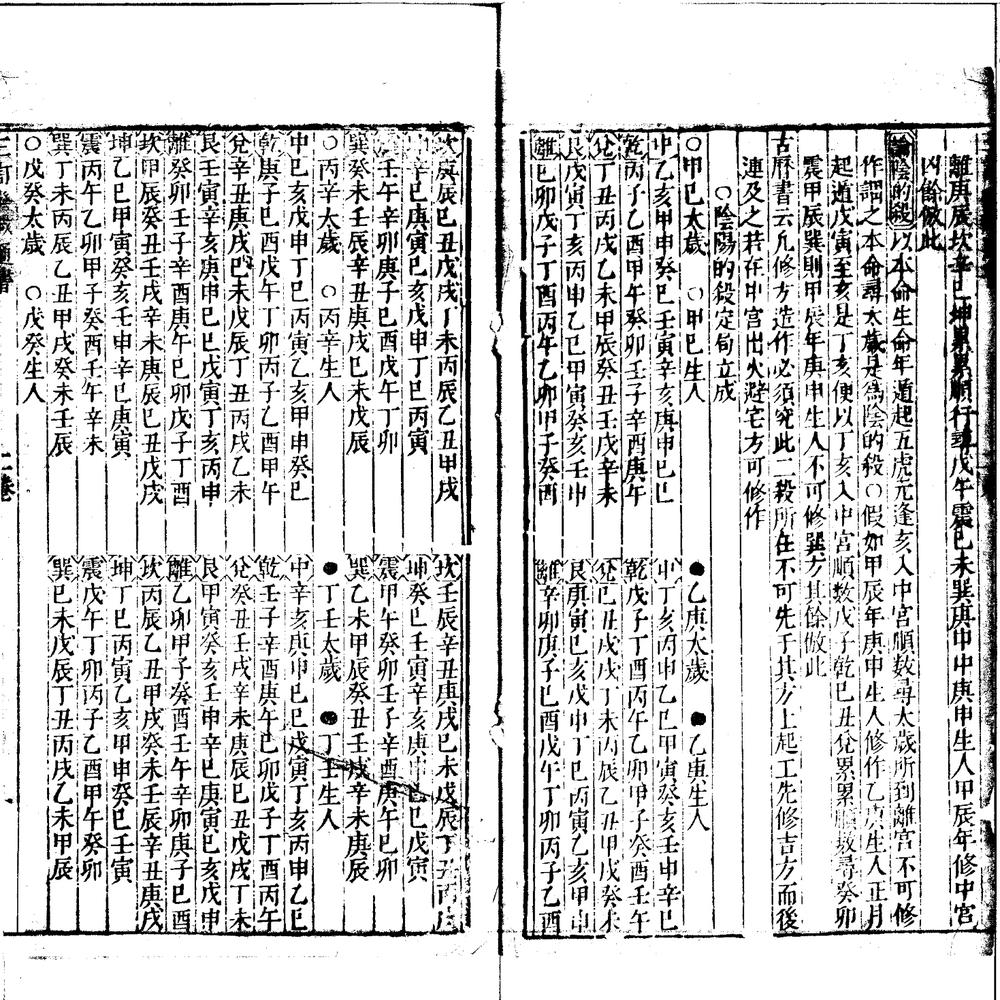 離庚辰坎辛巳坤累累順行尋戊午震己未巽庚申中庚申生人甲辰年修中宮
凶餘倣此
論陰的殺 以本命生命年遁起五虎元逢亥入中宮順數尋太歲所到離宮不可修
作謂之本命尋太歲是為陰的殺○假如甲辰年庚申生人修作乙庚生人正月
起遁戊寅至亥是丁亥便以丁亥入中宮順數戊子乾己丑兌累累順數尋癸卯
震甲辰巽則甲辰年庚申生人不可修巽方其餘倣此
古曆書云凡修方造作必須究此二殺所在不可先于其方上起工先修吉方而後
連及之若在中宮出火避宅方可修作
○陰陽的殺定局立成
○甲己太歲 ○甲己生人
中乙亥甲申癸巳壬寅辛亥庚申己巳
乾丙子乙酉甲午癸卯壬子辛酉庚午
兌丁丑丙戌乙未甲辰癸丑壬戌辛未
艮戊寅丁亥丙申乙巳甲寅癸亥壬申
離己卯戊子丁酉丙午乙卯甲子癸酉
●乙庚太歲 ●乙庚生人
中丁亥丙申乙巳甲寅癸亥壬申辛巳
乾戊子丁酉丙午乙卯甲子癸酉壬午
兌己丑戊戌丁未丙辰乙丑甲戌癸未
艮庚寅己亥戊申丁巳丙寅乙亥甲申
離辛卯庚子己酉戊午丁卯丙子乙酉
坎庚辰己丑戊戌丁未丙辰乙丑甲戌
坤辛巳庚寅己亥戊申丁巳丙寅
震壬午辛卯庚子己酉戊午丁卯
巽癸未壬辰辛丑庚戌己未戊辰
○丙辛太歲 ○丙辛生人
中己亥戊申丁巳丙寅乙亥甲申癸巳
乾庚子己酉戊午丁卯丙子乙酉甲午
兌辛丑庚戌己未戊辰丁丑丙戌乙未
艮壬寅辛亥庚申己巳戊寅丁亥丙申
離癸卯壬子辛酉庚午己卯戊子丁酉
坎甲辰癸丑壬戌辛未庚辰己丑戊戌
坤乙巳甲寅癸亥壬申辛巳庚寅
震丙午乙卯甲子癸酉壬午辛未
巽丁未丙辰乙丑甲戌癸未壬辰
○戊癸太歲 ○戊癸生人
坎壬辰辛丑庚戌己未戊辰丁丑丙戌
坤癸巳壬寅辛亥庚申己巳戊寅
震甲午癸卯壬子辛酉庚午己卯
巽乙未甲辰癸丑壬戌辛未庚辰
●丁壬太歲 ●丁壬生人
中辛亥庚申己巳戊寅丁亥丙申乙巳
乾壬子辛酉庚午己卯戊子丁酉丙午
兌癸丑壬戌辛未庚辰己丑戊戌丁未
艮甲寅癸亥壬申辛巳庚寅己亥戊申
離乙卯甲子癸酉壬午辛卯庚子己酉
坎丙辰乙丑甲戌癸未壬辰辛丑庚戌
坤丁巳丙寅乙亥甲申癸巳壬寅
震戊午丁卯丙子乙酉甲午癸卯
巽己未戊辰丁丑丙戌乙未甲辰